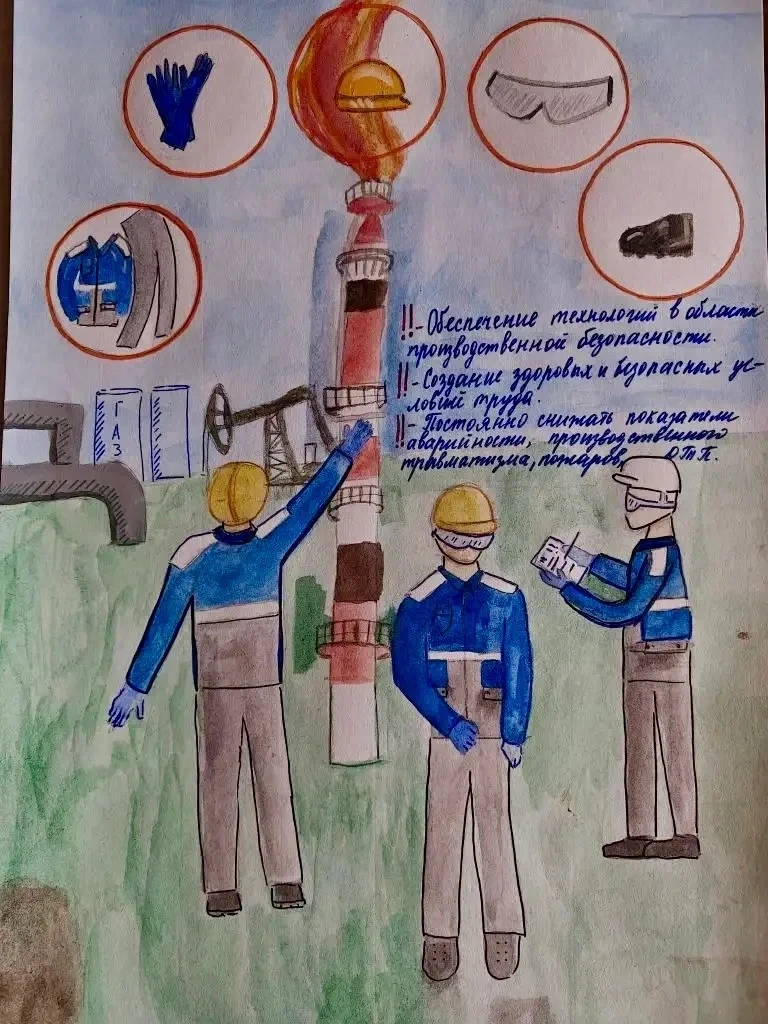 !!-Обеспечение технологий в области
производственной безопасности.
!!-Создание здоровых и безопасных ус-
ловий труда.
!!-Постоянно снижать показатели
аварийности, производственного
травматизма, пожаров, ДТП.
ГАЗ